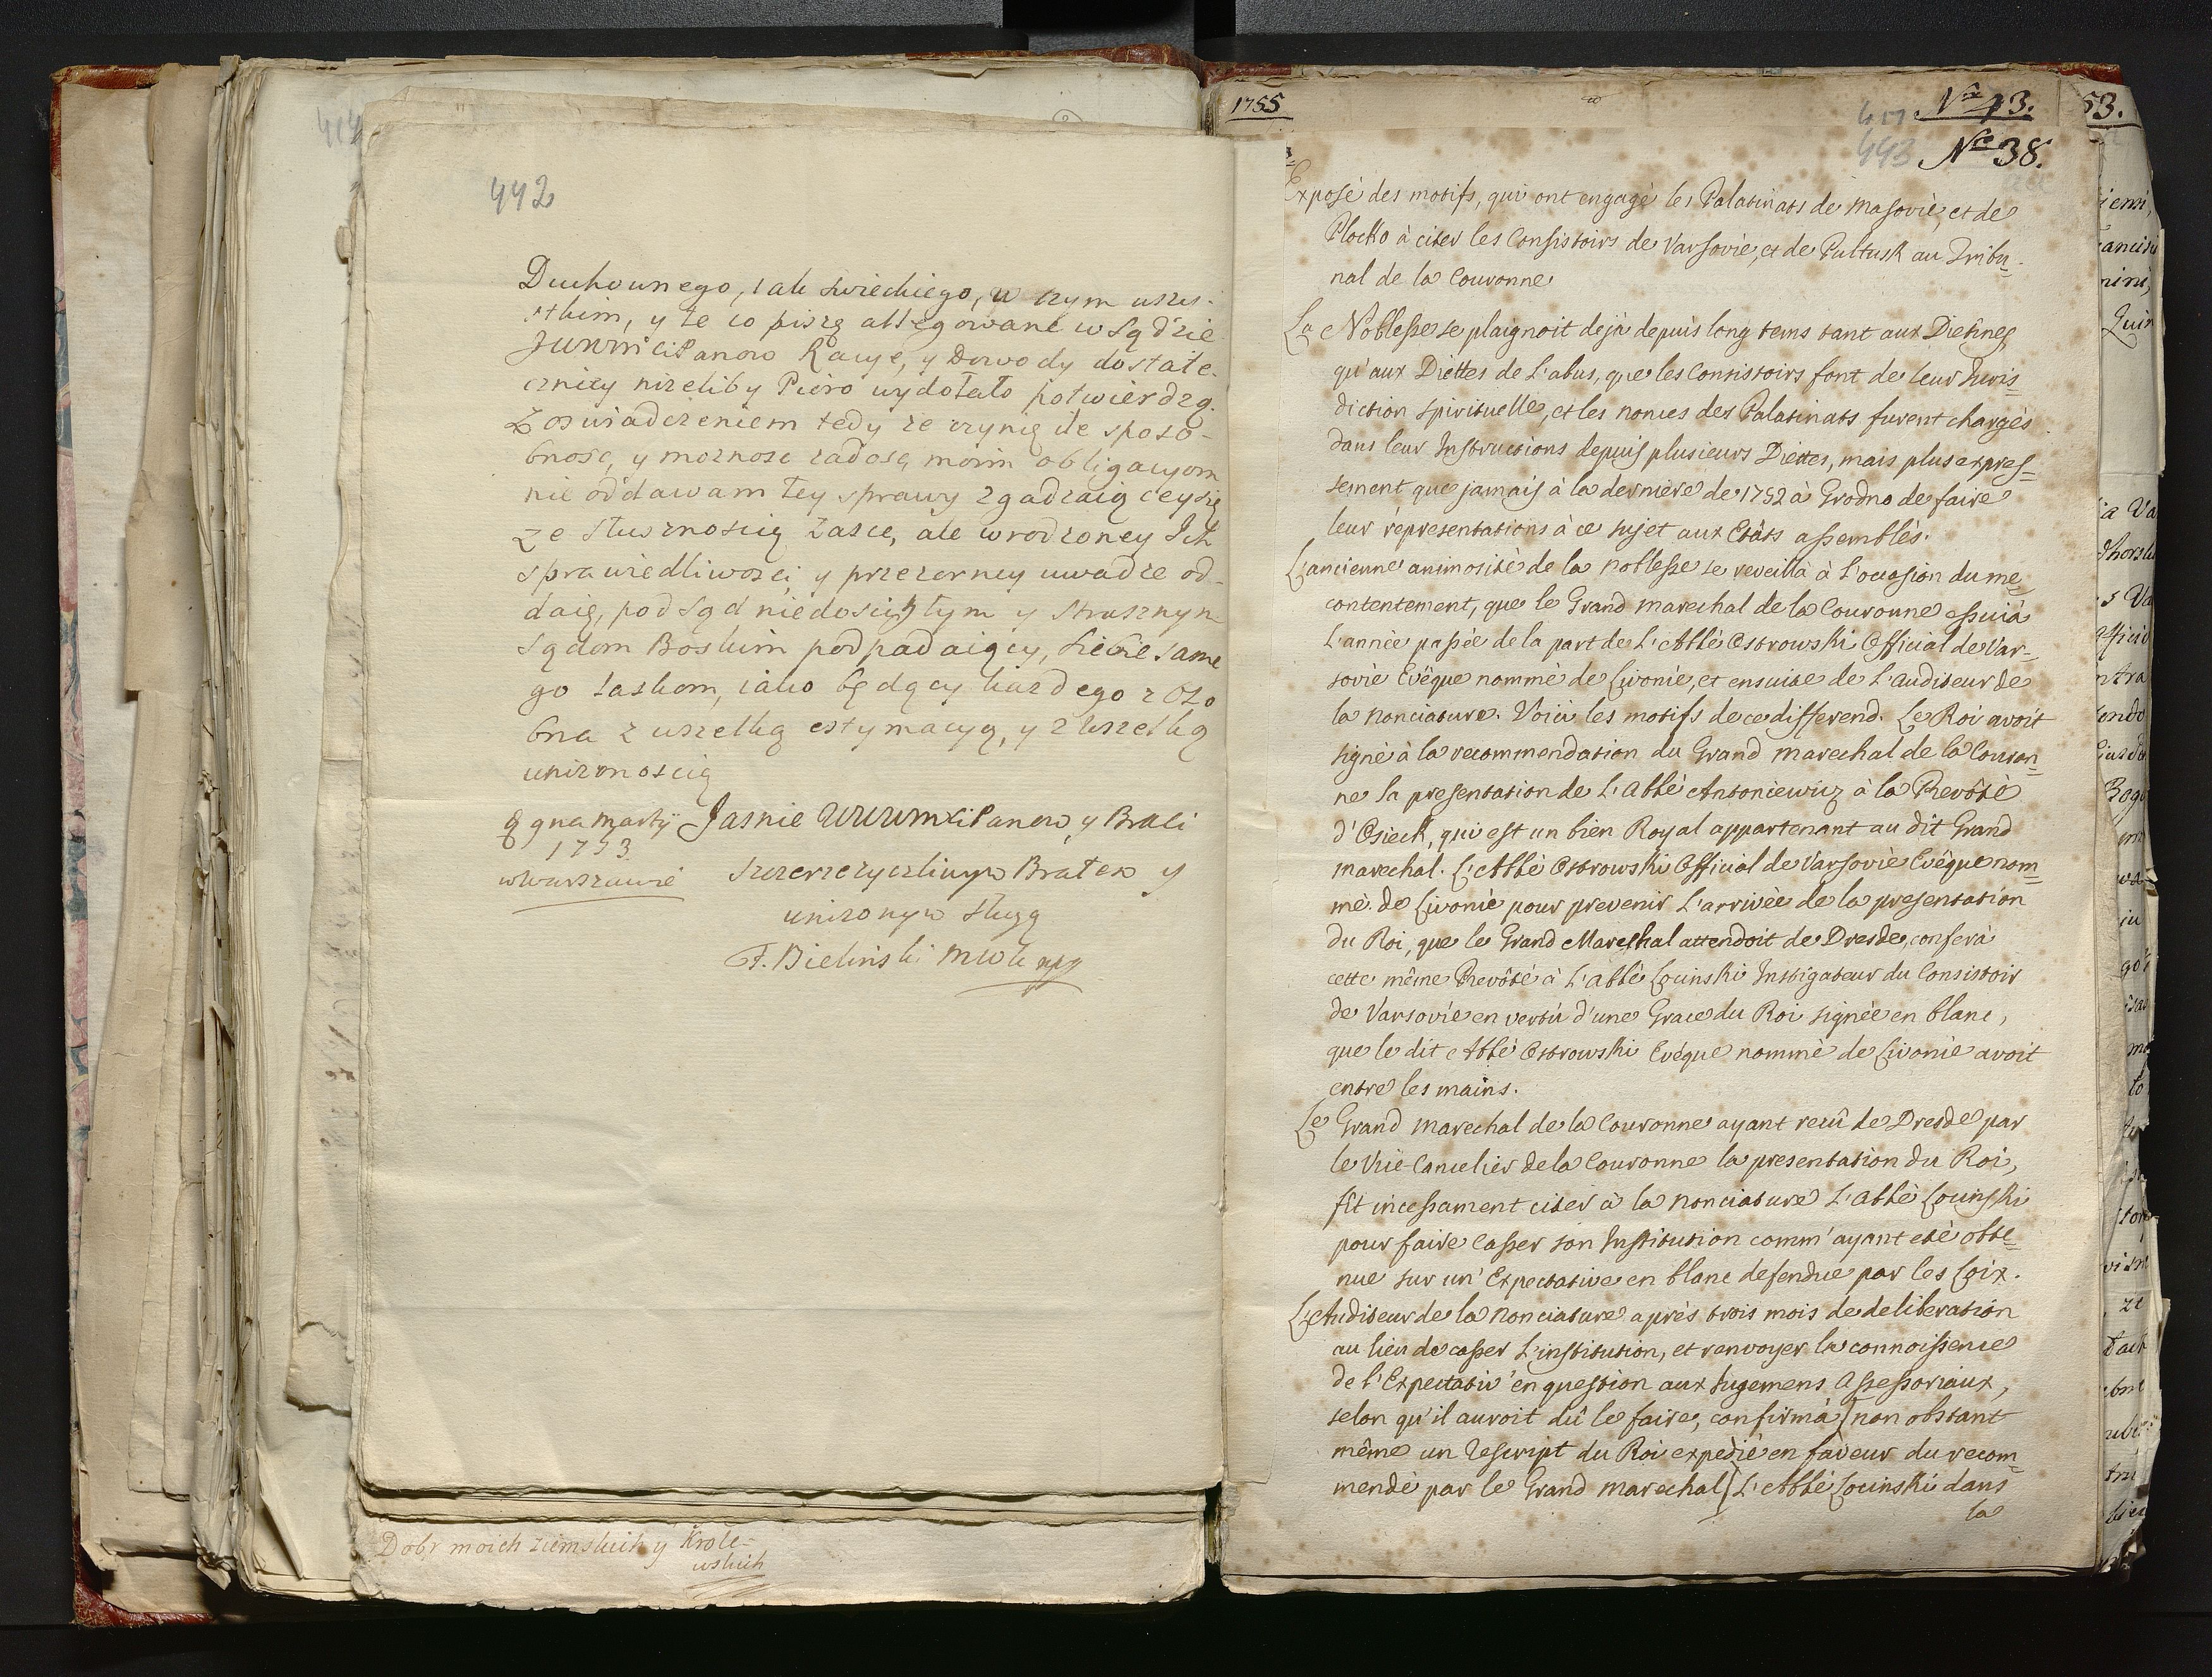 442
Duchownego, iak swieckiego, w czym wszy-
stkim, y te co piszę allegowane w Sądzie
JWWMciPanow Racye, y Dowody dostate-
czniey niżeliby Pióro wydołało potwierdzą.
Z oswiadczeniem tedy że czynię ile sposo-
bnosc, y moznosc zadosc moim obligacyom
nie oddawam tey sprawy zgadzaiącey się
ze Słusznoscią Łasce, ale wrodzoney Ich
sprawiedliwosci y przezorney uwadze od-
daię, pod Sąd niedoscigłym y Strasznym
Sądom Boskim podpadaiący, Siebie same
go Łaskom, iako będący kazdego z oso
bna z wszelką estymacyą, y z wszelką
unizonoscią
9 gna Martij Jasnie WWWMciPanow, y Braci
1753
w Warszawie Szczerzezyczliwym Bratem y
unizonym sługą
F. Bielinski MWK
Dobr moich ziemskich y Krole-
wskich
1755
Nro 13.
443 Nro 38.
Exposé des motifs, qui ont engagé les Palatinats de Masovie, et de
Plocko à citer les Consistoirs de Varsovie, et de Pultusk au Tribu-
nal de la Couronne
La Noblesse se plaignoit dejà depuis long tems tant aux Dietines
qu'aux Diettes de l'abus, que les Consistoirs font de leur Juris-
diction spirituelle, et les nonces des Palatinats furent chargés
dans leur Instructions depuis plusieurs Diettes, mais plus expres-
sement que jamais à la derniere de 1752 à Grodno de faire
leur répresentations à ce sujet aux Etâts assemblés.
L'ancienne animosité de la noblesse se reveillà à l'occasion du me-
contentement, que le Grand marechal de la Couronne essuià
l'année passée de la part de L'Abbé Ostrowski Official de Var-
sovie Evêque nommé de Livonie, et ensuite de L'auditeur de
la nonciature. Voici les motifs de ce differend. Le Roi avoit
signé à la recommendation du Grand marechal de la Couron-
ne la presentation de L'abbé Antoniewicz à la Prevôté
d'Osieck, qui est un bien Royal appartenant au dit Grand
marechal. L'Abbé Ostrowski Official de Varsovie Evêque nom-
mé de Livonie pour prevenir l'arrivée de la presentation
du Roi, que le Grand Marechal attendoit de Dresde, conferà
cette même Prevôté à L'abbé Louinski Instigateur du Consistoir
de Varsovie en vertù d'une Grace du Roi signée en blanc,
que le dit Abbé Ostrowski Evêque nommé de Livonie avoit
entre les mains.
Le Grand marechal de la Couronne ayant recû de Dresde par
le Vice-Cancelier de la Couronne la presentation du Roi,
fît incessament citer à la nonciature L'abbé Louinski
pour faire casser son Institution comm'ayant eté obte-
nue sur un' Expectative en blanc defendue par les Loix.
L'Auditeur de la nonciature après trois mois de deliberation
au lieu de casser l'institution, et renvoyer la connoissence
de l'Expectativ' en question aux Jugemens Assessoriaux,
selon qu'il auroit dû le faire, confirmà [non obstant
même un Rescript du Roi expedié en faveur du recom-
mendé par le Grand marechal] L'Abbé Louinski dans
la
53.